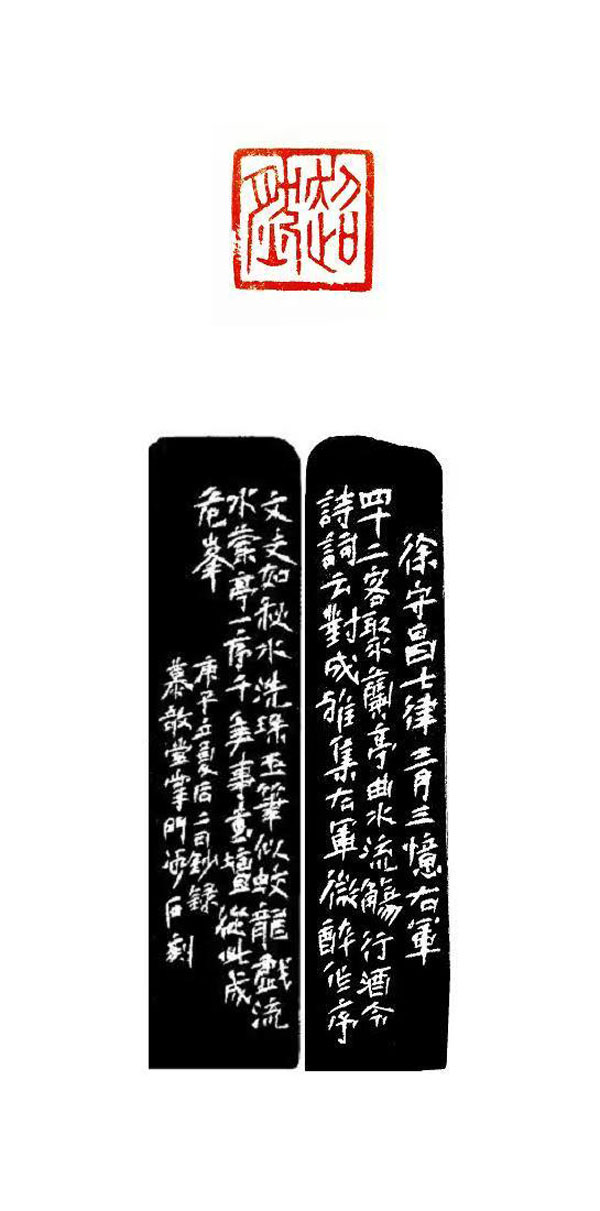 徐守昌七律三月三憶右軍
四十二客聚蘭亭曲水流觴行酒令
詩詞云對成雅集右軍微醉作序
文文如秋水洗珠玉筆似蛟龍戲流
水蘭亭一序千年事書壇從此成
危峯
庚子立夏后二日鈔錄
慕散堂掌門石刻